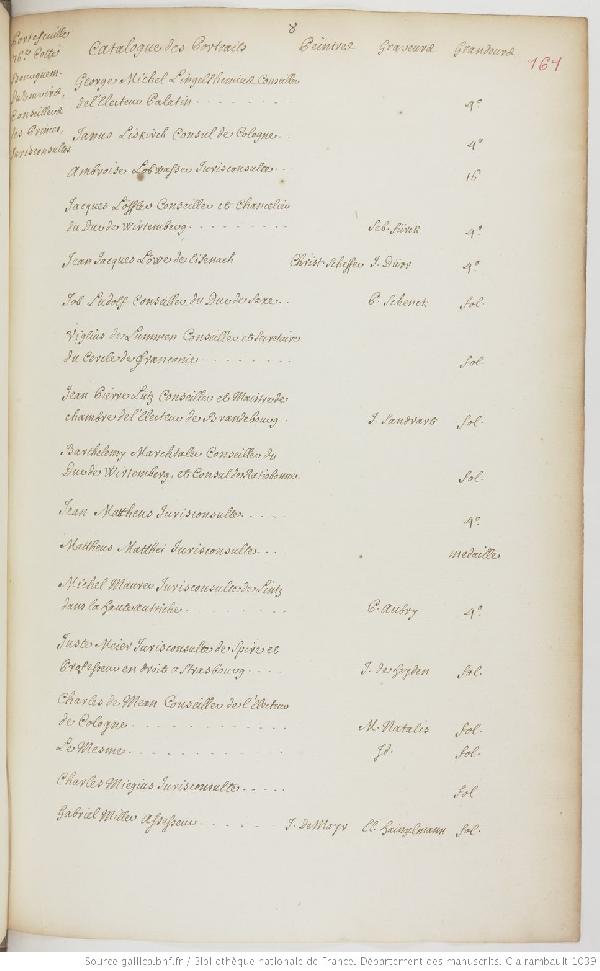 8
Portefeuille
Catalogue des Portraits Peintres Graveurs Grandeurs
161
Conseillers
des Princes,
Jurisconsultes
George Michel Lingelthemius Conseiller
de l'Electeur Palatin . . . . . . . . 4º
Janus Liskirch Consul de Cologne . . 4º
Ambroise Lobwasser Jurisconsulte . . 16
Jacques Loffler Conseiller et Chancelier
du Duc de Wirtemberg . . . . . . . . Seb. Furck 4º
Jean Jacques Löwe de l'isenach Christ. Scheffer J. Dürr 4º
Job Ludolf Conseiller du Duc de Saxe . . P. Schenck fol.
Viglius de Lummen Conseiller et Secretaire
du Cercle de franconie . . . . . . . fol.
Jean Pierre Lutz Conseiller et Maistre de
chambre de l'Electeur de Brandebourg . J. Sandrart fol.
Barthelemy Marchtaler Conseiller du
Duc de Wirtemberg, et Consul de Ratisbonne fol.
Jean Mattheus Jurisconsulte . . . . 4º
Mattheus Matthei Jurisconsulte . . . medaille
Michel Maurer Jurisconsulte de Lintz
dans la haute autriche . . . . . . . P. Aubry 4º
Juste Meier Jurisconsulte de Spire et
Professeur en droit a Strasbourg . . . J. de heyden fol.
Charles de Mean Conseiller de l'electeur
de Cologne . . . . . . . . . . M. Natalis fol.
Le Mesme . . . . . . . . . . Id. fol.
Charles Miegius Jurisconsulte . . . . . fol
Gabriel Miller Assesseur . . . . . . J. De Mayr El. hainzlmann fol.
Source gallica.bnf.fr / Bibliothèque nationale de France. Département des manuscrits. Clairambault 1039